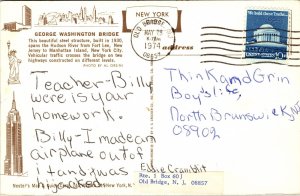 GEORGE WASHINGTON BRIDGE
This beautiful steel structure, built in 1930,
spans the Hudson River from Fort Lee, New
Jersey to Manhattan Island, New York City.
Vehicular traffic crosses the bridge on two
highways constructed on different levels.
NEW YORK
OLD BRIDGE
MAY 29
1974
08857
address
We hold these Truths...
10c
Teacher-Billy
were is your
homework.
Billy-I made an
airplane out of
it and
ThinkandGrin
Boys life,
North Brunswick NJ
08902
Eddie
Rte. 1 Box 60
Old Bridge, N. J. 08857